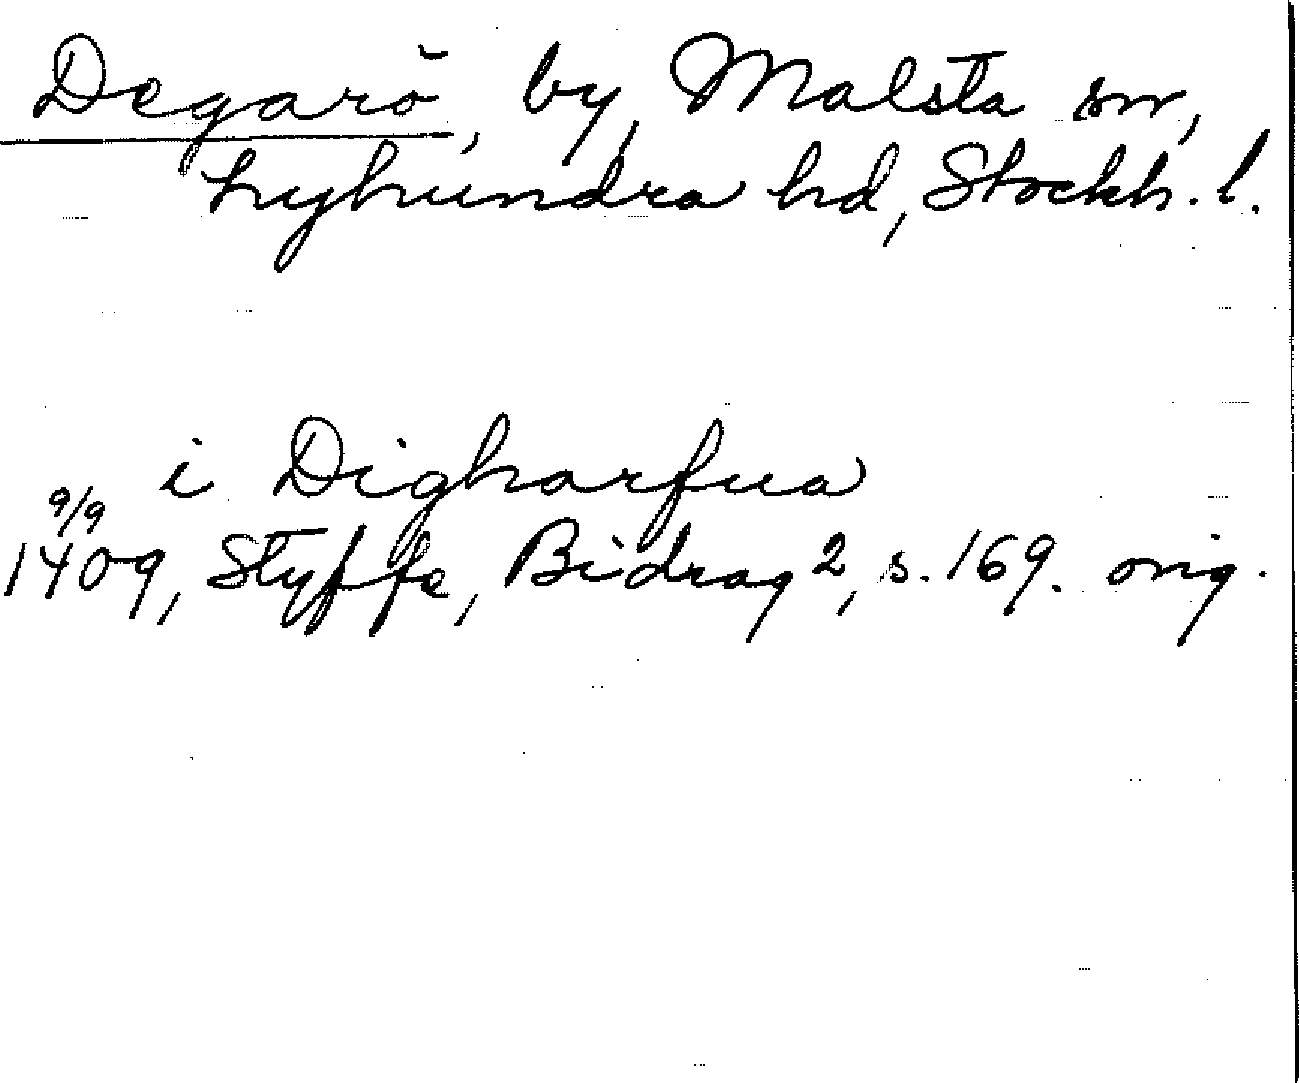 Degarö, by, Malsta sn,
Lyhundra hd, Stockh. l.
i Digharfua
9/9
1409, Styffe, Bidrag 2, s. 169. orig.